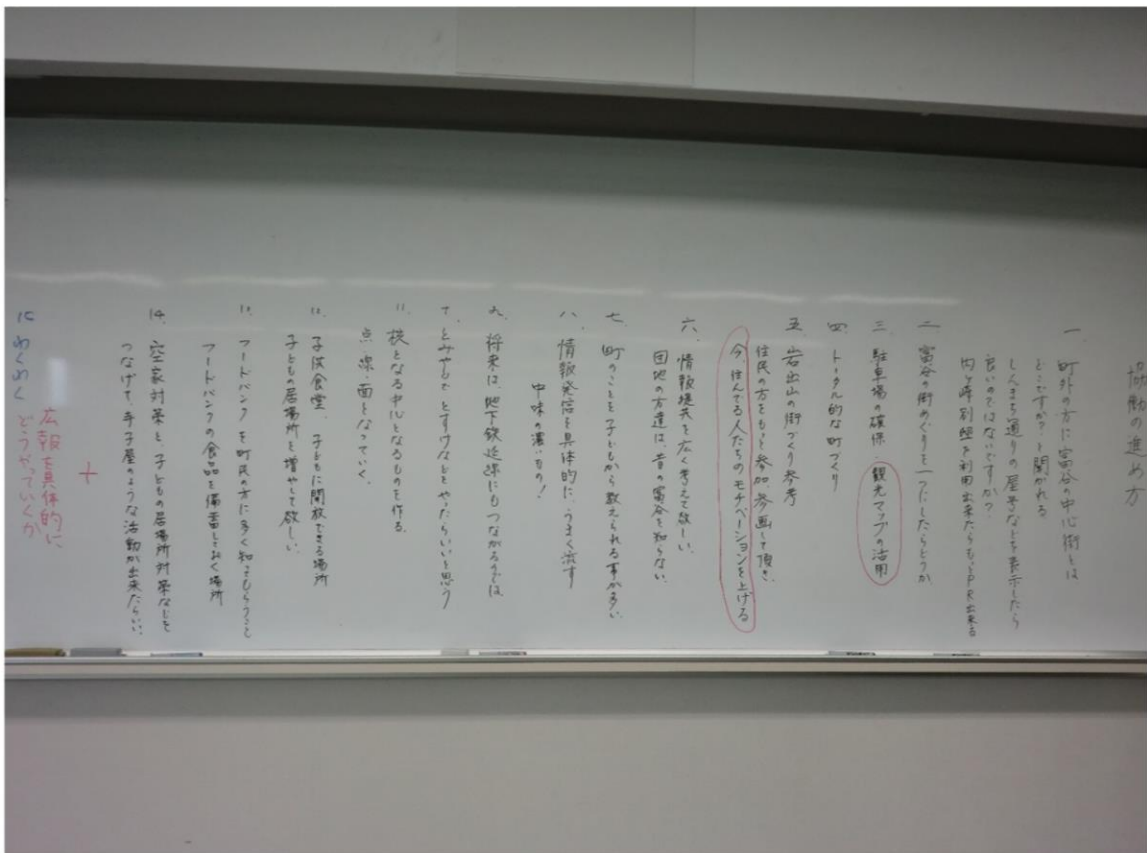 協働の進め方
一 町外の方に富谷の中心街とは
どこですか?と聞かれる
しんまち通りの屋号などを表示したら
良いのではないですか?
内ヶ崎別邸を利用出来たらもっとPR出来る
二 富谷の街めぐりを一つにしたらどうか
三 駐車場の確保・観光マップの活用
四 トータル的な町づくり
五 岩出山の街づくり参考
住民の方をもっと参加、参画して頂き、
今、住んでる人たちのモチベーションを上げる
六、情報提供を広く考えて欲しい。
団地の方達は、昔の富谷を知らない、
七、町のことを子どもから教えられる事が多い
八、情報発信を具体的に、うまく流す
中味の濃いもの!
九、将来は、地下鉄延線にもつながるのでは
十、とみやもで とすけなどをやったらいいと思う
11、核となる中心となるものを作る
点・線・面となっていく、
12、子供食堂、子どもに開放できる場所
子どもの居場所を増やして欲しい。
13、フードバンクを町民の方に多く知ってもらうこと
フードバンクの食品を備蓄しておく場所
14、空家対策と、子どもの居場所対策などを
つなげて、寺子屋のような活動が出来たらいい、
+
広報を具体的に
どうやっていくか
15 わくわく